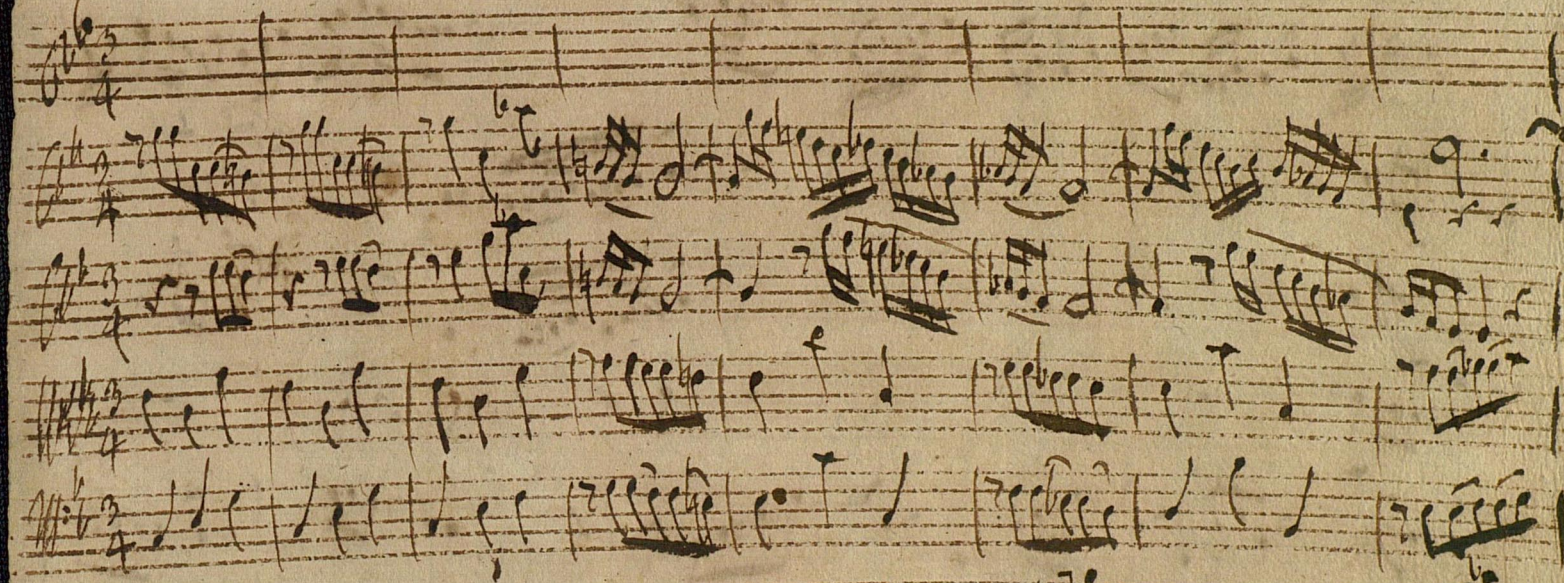 3
4
3
4
3
4
3
4
3
4